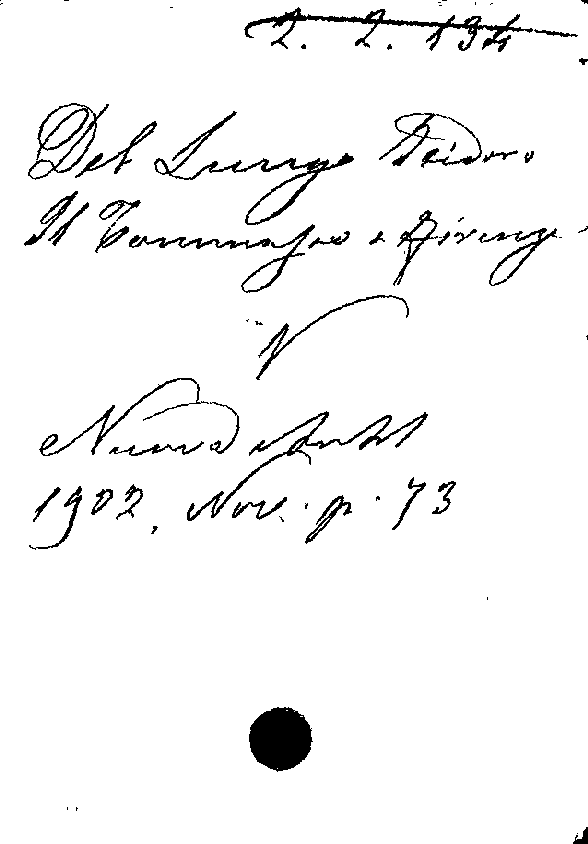 2. 2. 134
Del Lungo Isidoro
Il Tommaseo e Firenze
V
Nuova Antol
1902, Nov. p. 73